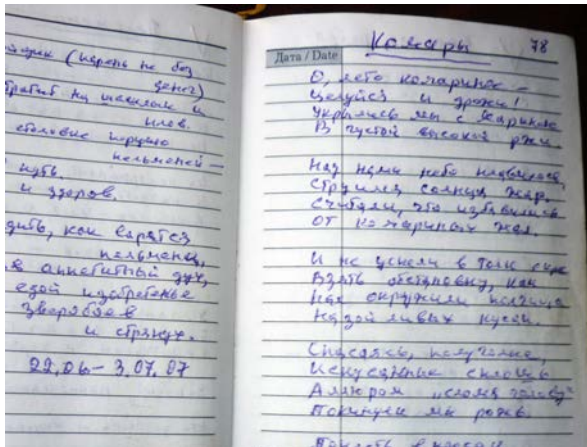 йщик (парень не без
денег)
тратит на шашлык и
плов.
столовке порцию
пельменей —
путь.
и здоров.
дить, как варятся
пельмени,
аппетитный дух,
едой изобретенье
зверобоев
и стряпух.
22.06 – 3.07.07
Дата / Date
Комары
78
О, лето комариное –
Целуйся и дрожи!
Укрылись мы с Мариною
В густой высокой ржи.
Над нами небо плавилось,
Струился солнца жар.
Считали, что избавились
От комариных жал.
И не успели в толк
Взять обстановку, как
Нас окружили полчища
Назойливых кусак.
Спасаясь, полуголые,
Искусанные сплошь
Аллюром „сломя голову"
Покинули мы рожь.